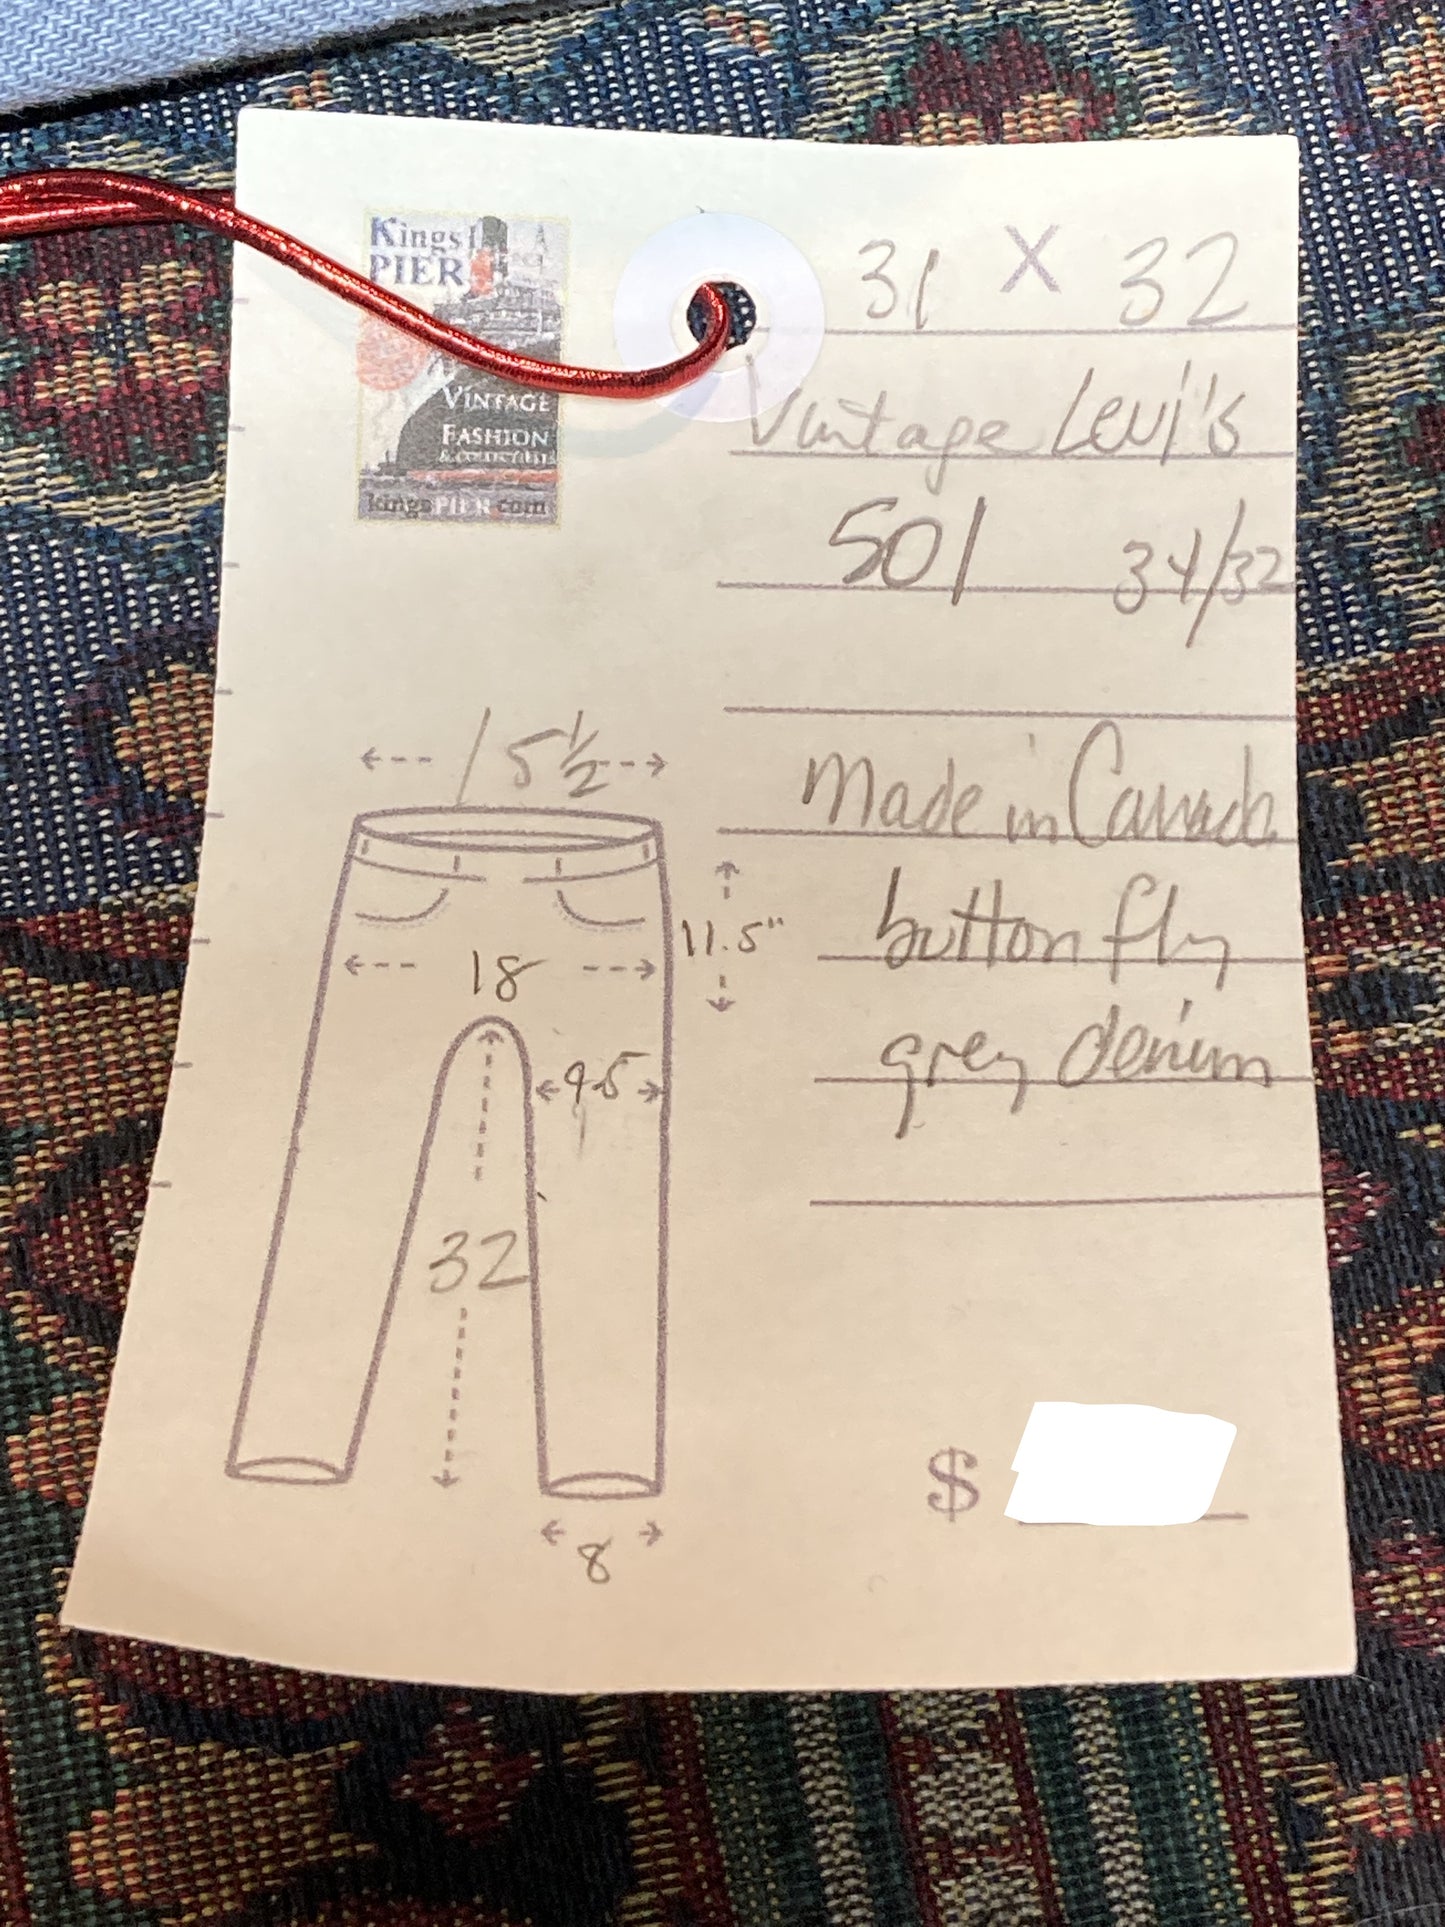 Kings
PIER
VINTAGE
FASHION
& COLLECTIBLES
kingsPIER.com
31 X 32
Vintage Levi's
501 34/32
Made in Canada
button fly
grey denim
15 1/2
11.5"
18
9.5
32
8
$